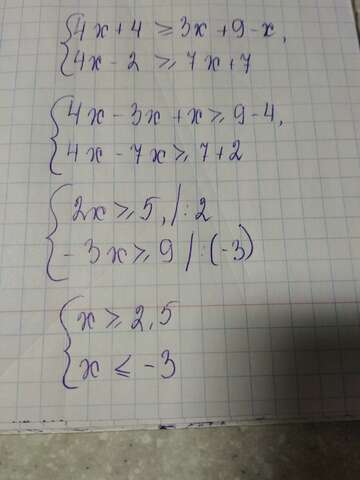 4x+4 ≥ 3x+9-x,
4x-2 ≥ 7x+7
4x-3x+x ≥ 9-4,
4x-7x ≥ 7+2
2x ≥ 5, /:2
-3x ≥ 9 /:(-3)
x ≥ 2,5
x ≤ -3